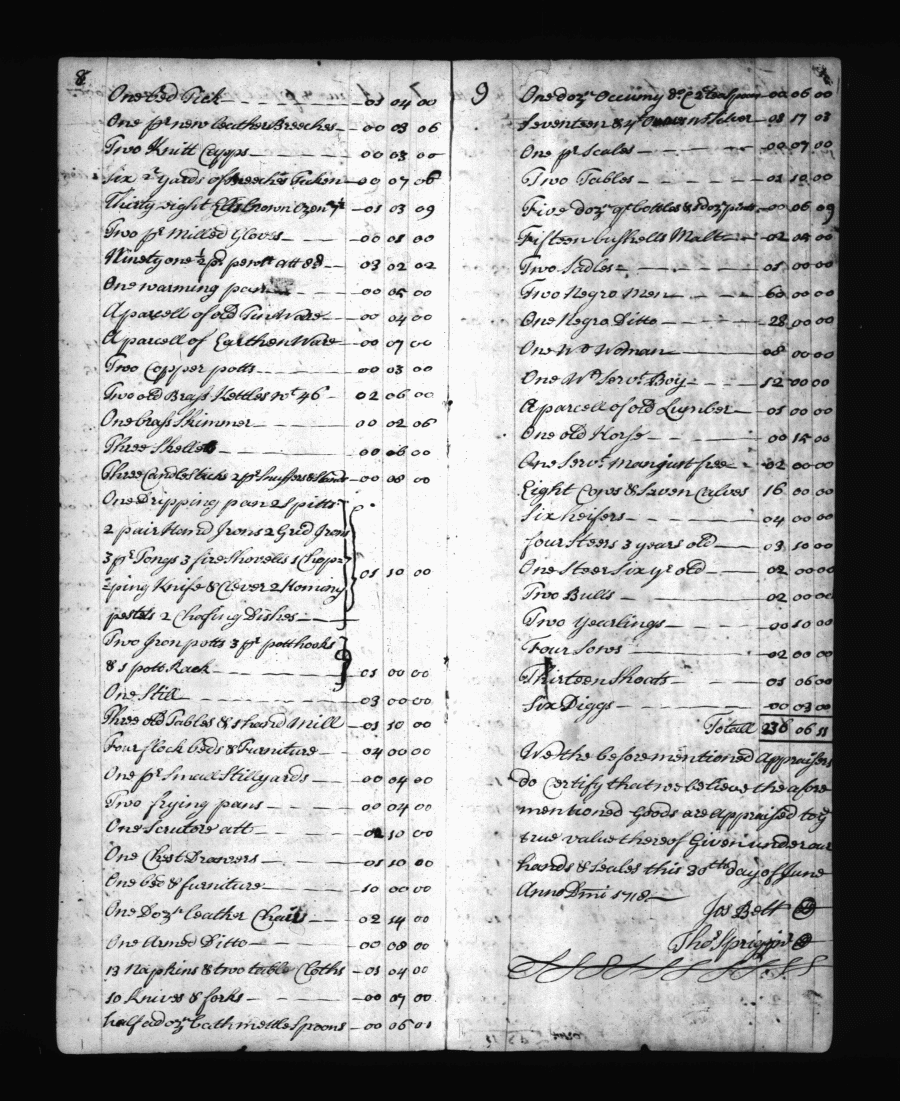 8
One Bed Tick 01 04 00
One pr new leather Breeches 00 03 06
Two Knitt Capps 00 03 00
Six yards of Breeches Ticken 00 07 06
Thirty eight Ells brown Ozenr 01 03 09
Two pr Milled Gloves 00 01 00
Ninety one ½ pd pewtr att 8d 03 02 02
One warming pan 00 05 00
A parcell of old Tin Ware 00 04 00
A parcell of Earthen Ware 00 07 00
Two Copper potts 00 03 00
Two old Brass Kettles wt 46 02 06 00
One brass Skimmer 00 02 06
Three Skellets 00 06 00
Three Candlesticks 2 pr Snuffers & Stand 00 08 00
One Dripping pan 2 Spitts
2 pair Hand Irons 2 Grid Irons
3 pr Tongs 3 fire Shovells 1 Chopp 01 10 00
ping Knife & Clever 2 Hominy
pestels 2 Chafing Dishes
Two Iron potts 3 pr potthooks
& 1 pott Rack 01 00 00
One Still 03 00 00
Three old Tables & 1 hand Mill 01 10 00
Four flock beds & Furniture 04 00 00
One pr Small Stillyards 00 04 00
Two frying pans 00 04 00
One Scrutore att 02 10 00
One Chest Drawers 01 10 00
One bed & furniture 10 00 00
One Dozn leather Chairs 02 14 00
One Armed Ditto 00 08 00
13 Napkins & two table Cloths 01 04 00
10 Knives & forks 00 07 00
half a dozn bathmettle Spoons 00 06 01
9
One dozn Occumy Do 00 06 00
Seventeen & 03 17 03
One pr Scales 00 07 00
Two Tables 01 10 00
Five dozn qt bottles & 00 06 09
Fifteen bushells Malt 02 05 00
Two Sadles 01 00 00
Two Negro Men 60 00 00
One Negro Ditto 28 00 00
One Wt Woman 08 00 00
One Wt Servt Boy 12 00 00
A parcell of old Lumber 01 00 00
One old Horse 00 15 00
One Servt Man just free 02 00 00
Eight Cows & Seven Calves 16 00 00
Six heifers 04 00 00
four Steers 3 years old 03 10 00
One Steer Six yr old 02 00 00
Two Bulls 02 00 00
Two Yearlings 00 10 00
Four Sows 02 00 00
Thirteen Shoats 01 06 00
Six Piggs 00 03 00
Totall 236 06 11
We the before mentioned Appraisers
do Certify that we believe the afore
mentioned Goods are appraised to ye
true value thereof Given under our
hands & Seales this 20th day of June
Anno Dmi 1718
Jos Belt
Thos Spriggin